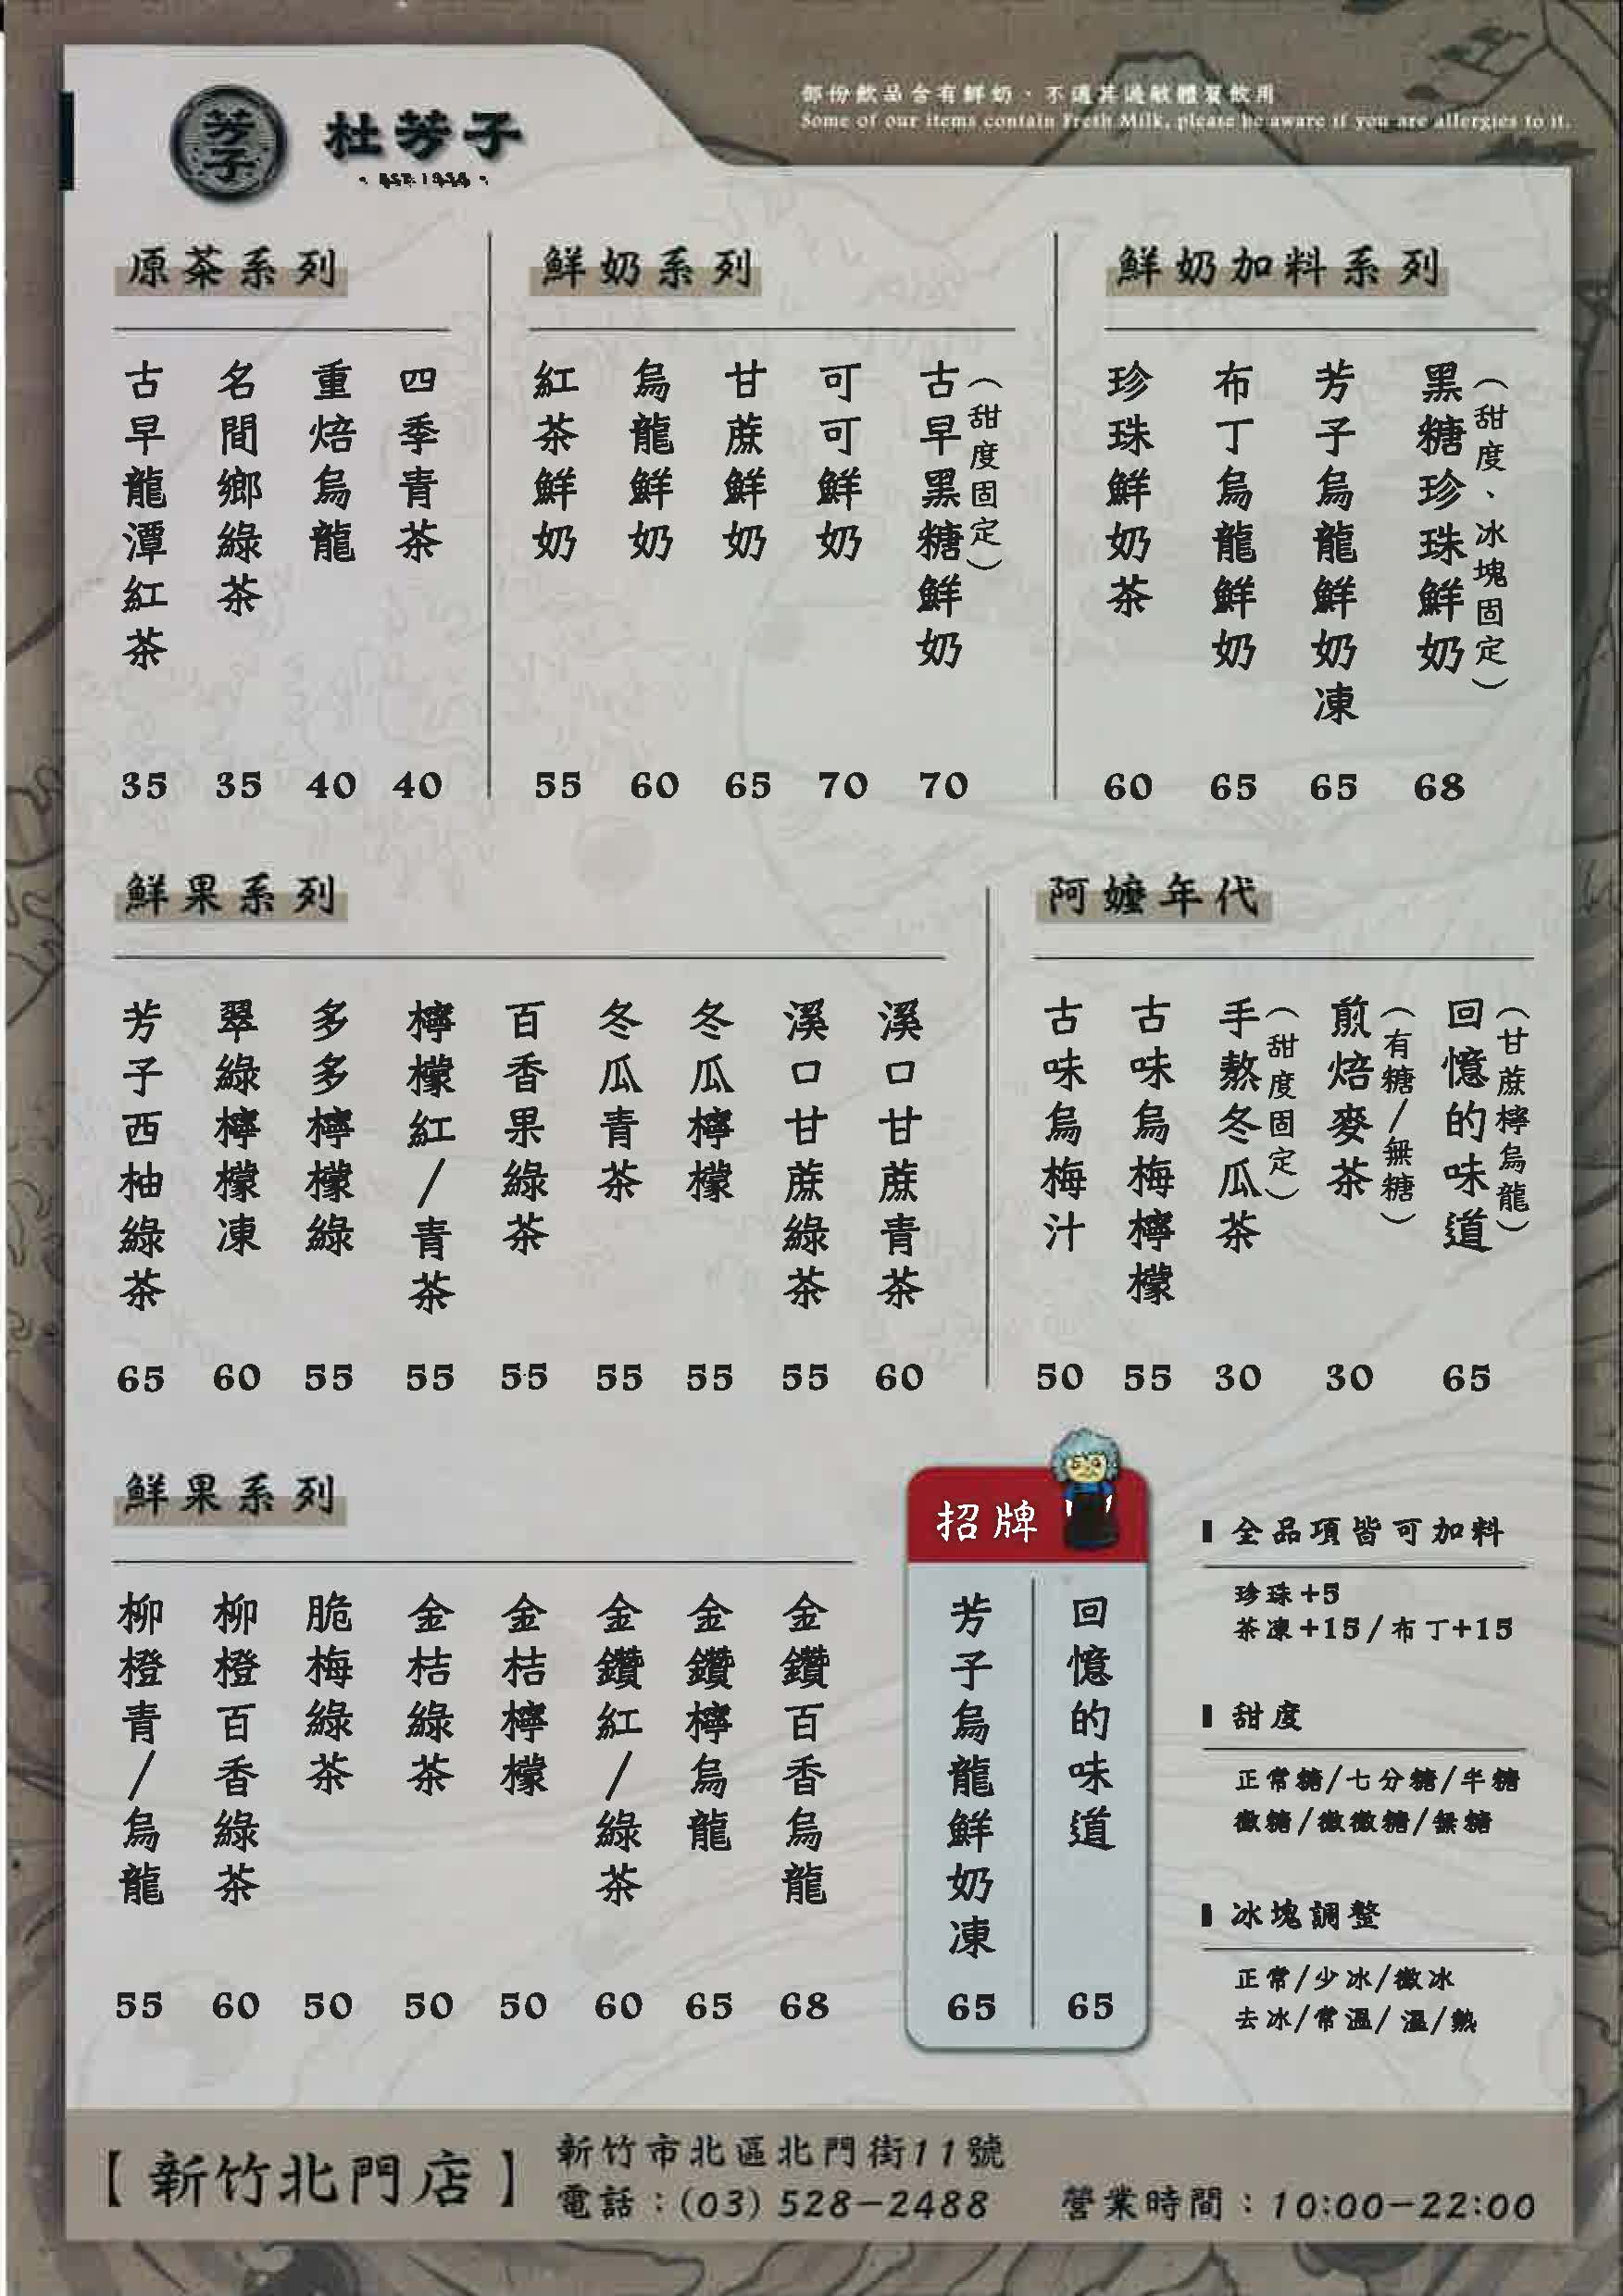 芳子
杜芳子
部份飲品含有鮮奶、不適其過敏體質飲用
Some of our items contain Fresh Milk, please be aware if you are allergies to it.
原茶系列
古早龍潭紅茶 35
名間鄉綠茶 35
重焙烏龍 40
四季青茶 40
鮮奶系列
紅茶鮮奶 55
烏龍鮮奶 60
甘蔗鮮奶 65
可可鮮奶 70
古早黑糖鮮奶(甜度固定) 70
鮮奶加料系列
珍珠鮮奶茶 60
布丁烏龍鮮奶 65
芳子烏龍鮮奶凍 65
黑糖珍珠鮮奶(甜度、冰塊固定) 68
鮮果系列
芳子西柚綠茶 65
翠綠檸檬凍 60
多多檸檬綠 55
檸檬紅/青茶 55
百香果綠茶 55
冬瓜青茶 55
冬瓜檸檬 55
溪口甘蔗綠茶 55
溪口甘蔗青茶 60
阿嬤年代
古味烏梅汁 50
古味烏梅檸檬 55
手熬冬瓜茶(甜度固定) 30
煎焙麥茶(有糖/無糖) 30
回憶的味道(甘蔗檸烏龍) 65
鮮果系列
柳橙青/烏龍 55
柳橙百香綠茶 60
脆梅綠茶 50
金桔綠茶 50
金桔檸檬 50
金鑽紅/綠茶 60
金鑽檸烏龍 65
金鑽百香烏龍 68
招牌
芳子烏龍鮮奶凍 65
回憶的味道 65
全品項皆可加料
珍珠+5
茶凍+15/布丁+15
甜度
正常糖/七分糖/半糖
微糖/微微糖/無糖
冰塊調整
正常/少冰/微冰
去冰/常溫/溫/熱
【新竹北門店】
新竹市北區北門街11號
電話：(03) 528-2488
營業時間：10:00-22:00